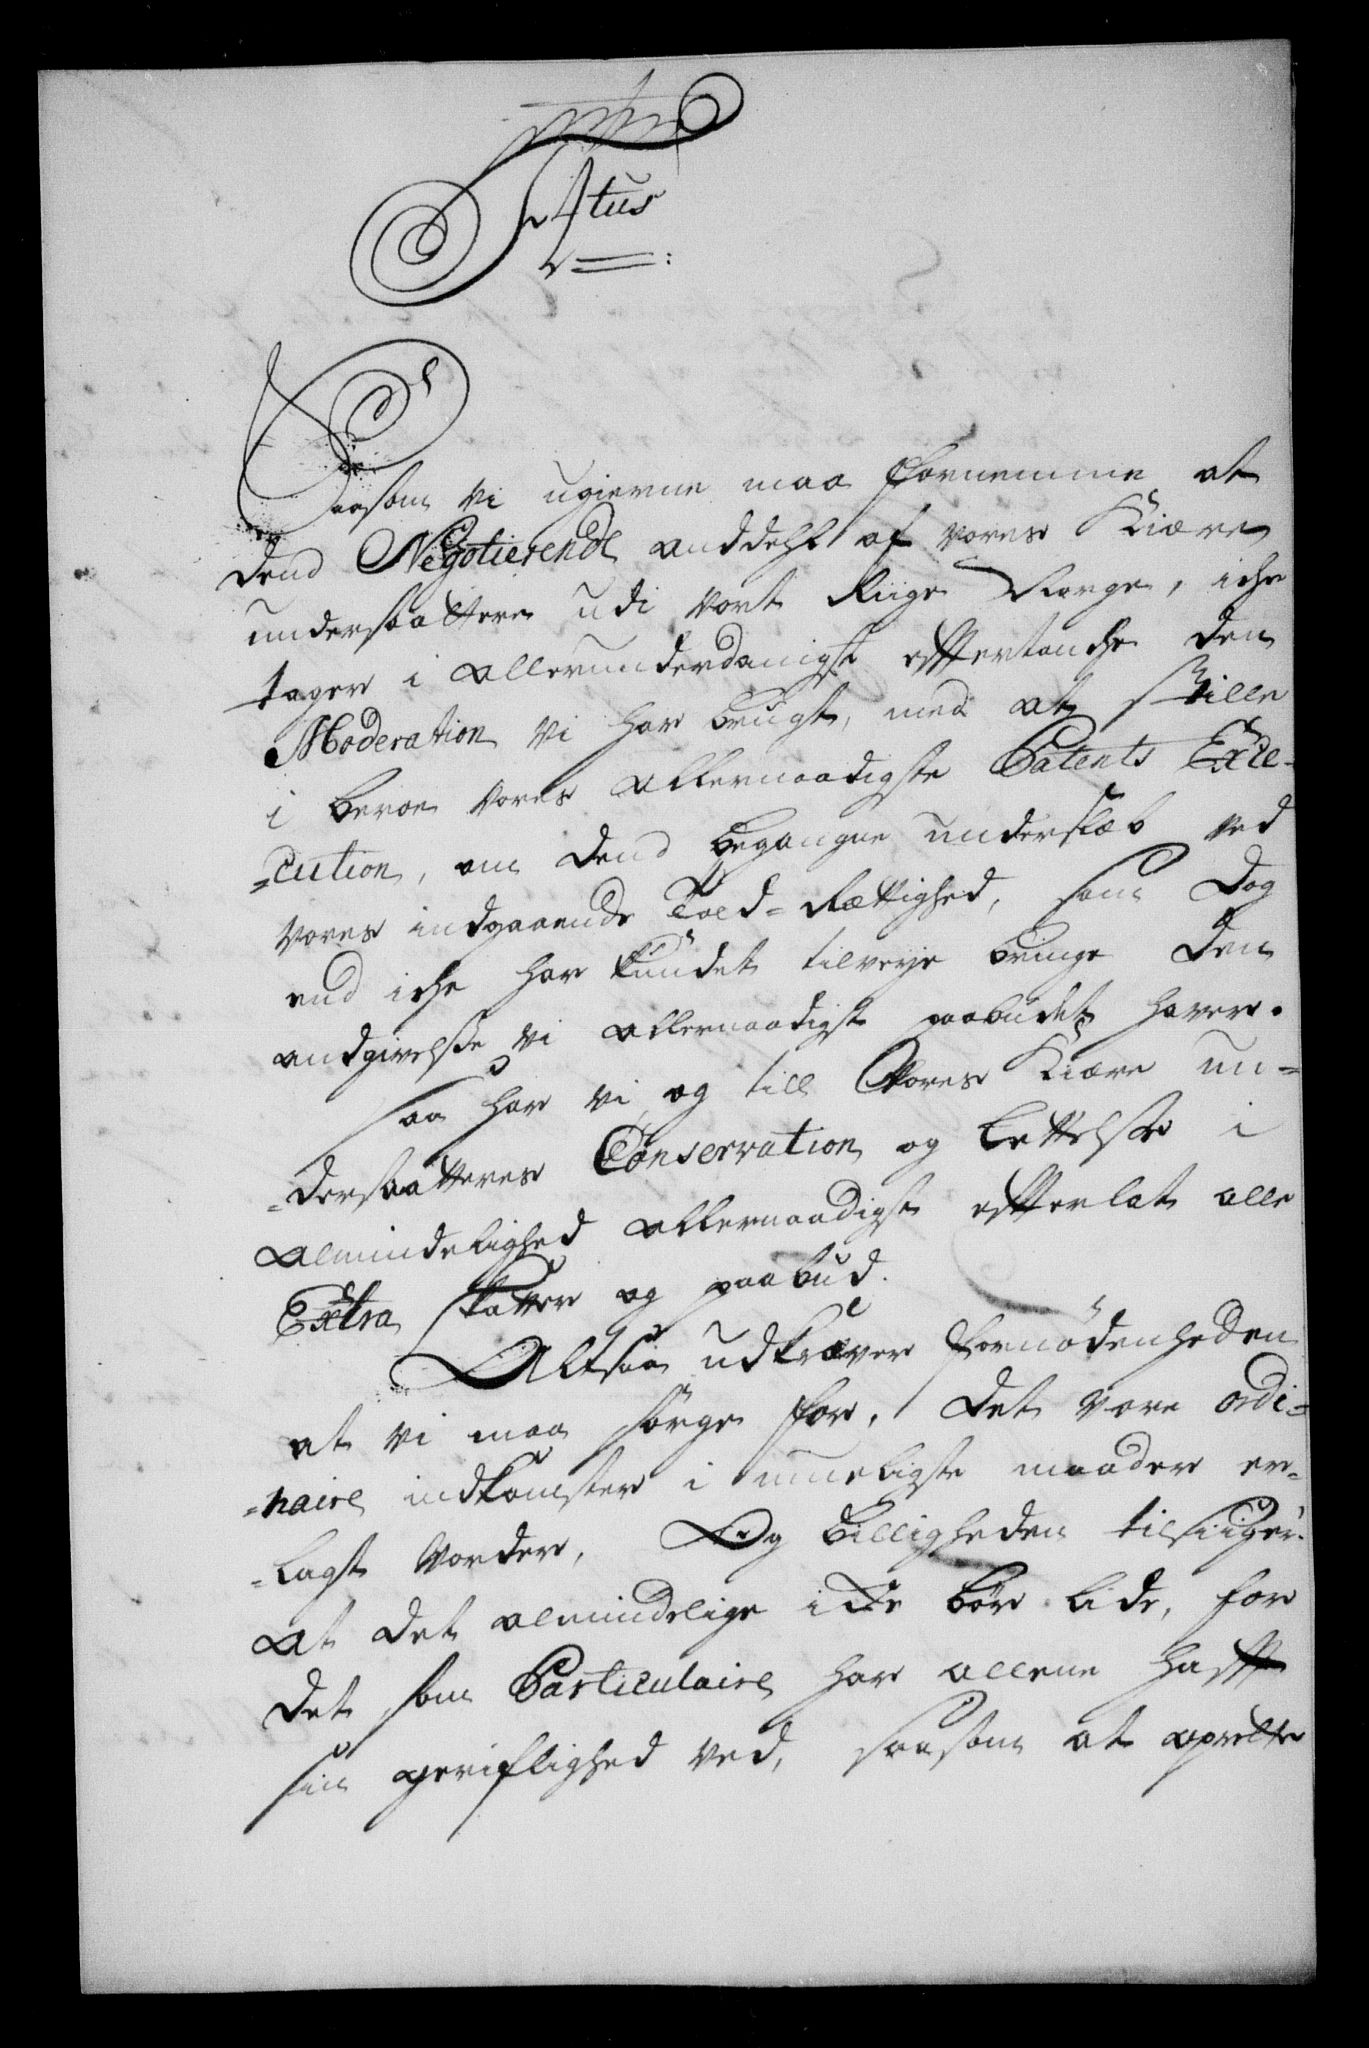 Saasom vi ugierne maa fornemme at
dend Negotierende anddehl af vores Kiære
undersaattere udi vort Riige Norge, iche
tager i allerunderdanigst efftertanche den
Moderation vi har brugt, med at stille
i beroe vores allernaadigste Patents Exe-
=cution, om dend begangne underslæb ved
vores indgaaende Told=Rettighed, som dog
end iche har kundet tilveye bringe den
andgivelsse vi allernaadigst paabudet haver.
Saa har vi og till Vores Kiære un=
=dersaatteres Conservation og Lettelsse i
almindelighed allernaadigst efterlat alle
Extra skatter og paabud.
Altsaa udkræver fornødenheden
at vi maa sørge for, det vore ordi=
=naire indkomster i mueligste maader er=
=lagt vorder, Og billigheden tilsiiger
at det almindelige icke bør lide, for
det som Particulaire har allene hafft
sin geriflighed ved, saasom at oprette